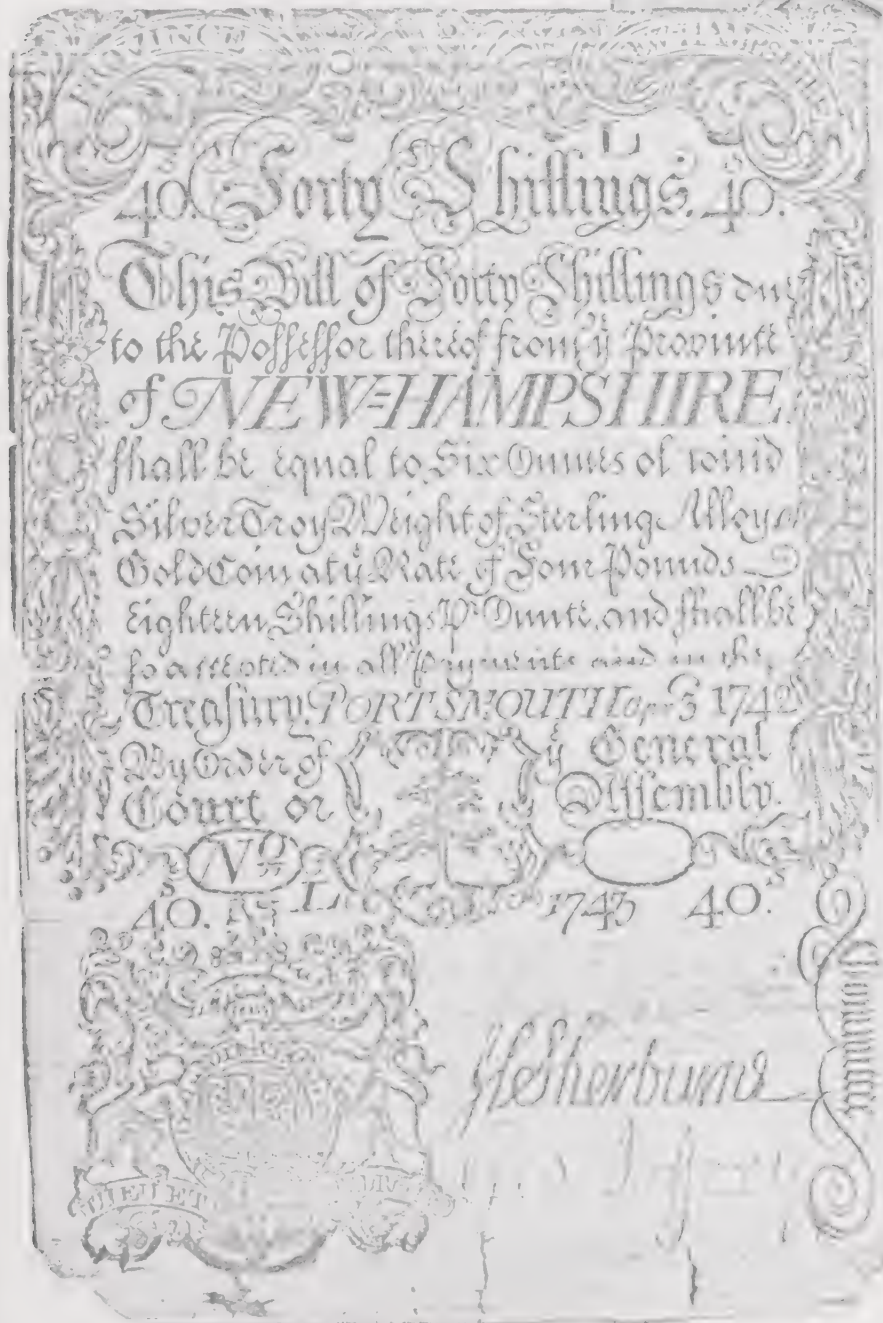 40ˢ. Forty Shillings. 40ˢ.
This Bill of Forty Shillings due
to the Possessor thereof from yᵉ Province
of NEW=HAMPSHIRE
shall be equal to Six Ounces of coin'd
Silver Troy Weight of Sterling Alloy or
Gold Coin at yᵉ Rate of Four Pounds
Eighteen Shillings Pʳ Ounce, and shall be
so accepted in all Payments and in the
Treasury. PORTSMOUTH apr 3 1742
By Order of yᵉ General
Court or Assembly.
Nº
40ˢ. L 1743 40ˢ.
HSherburne
DIEU ET